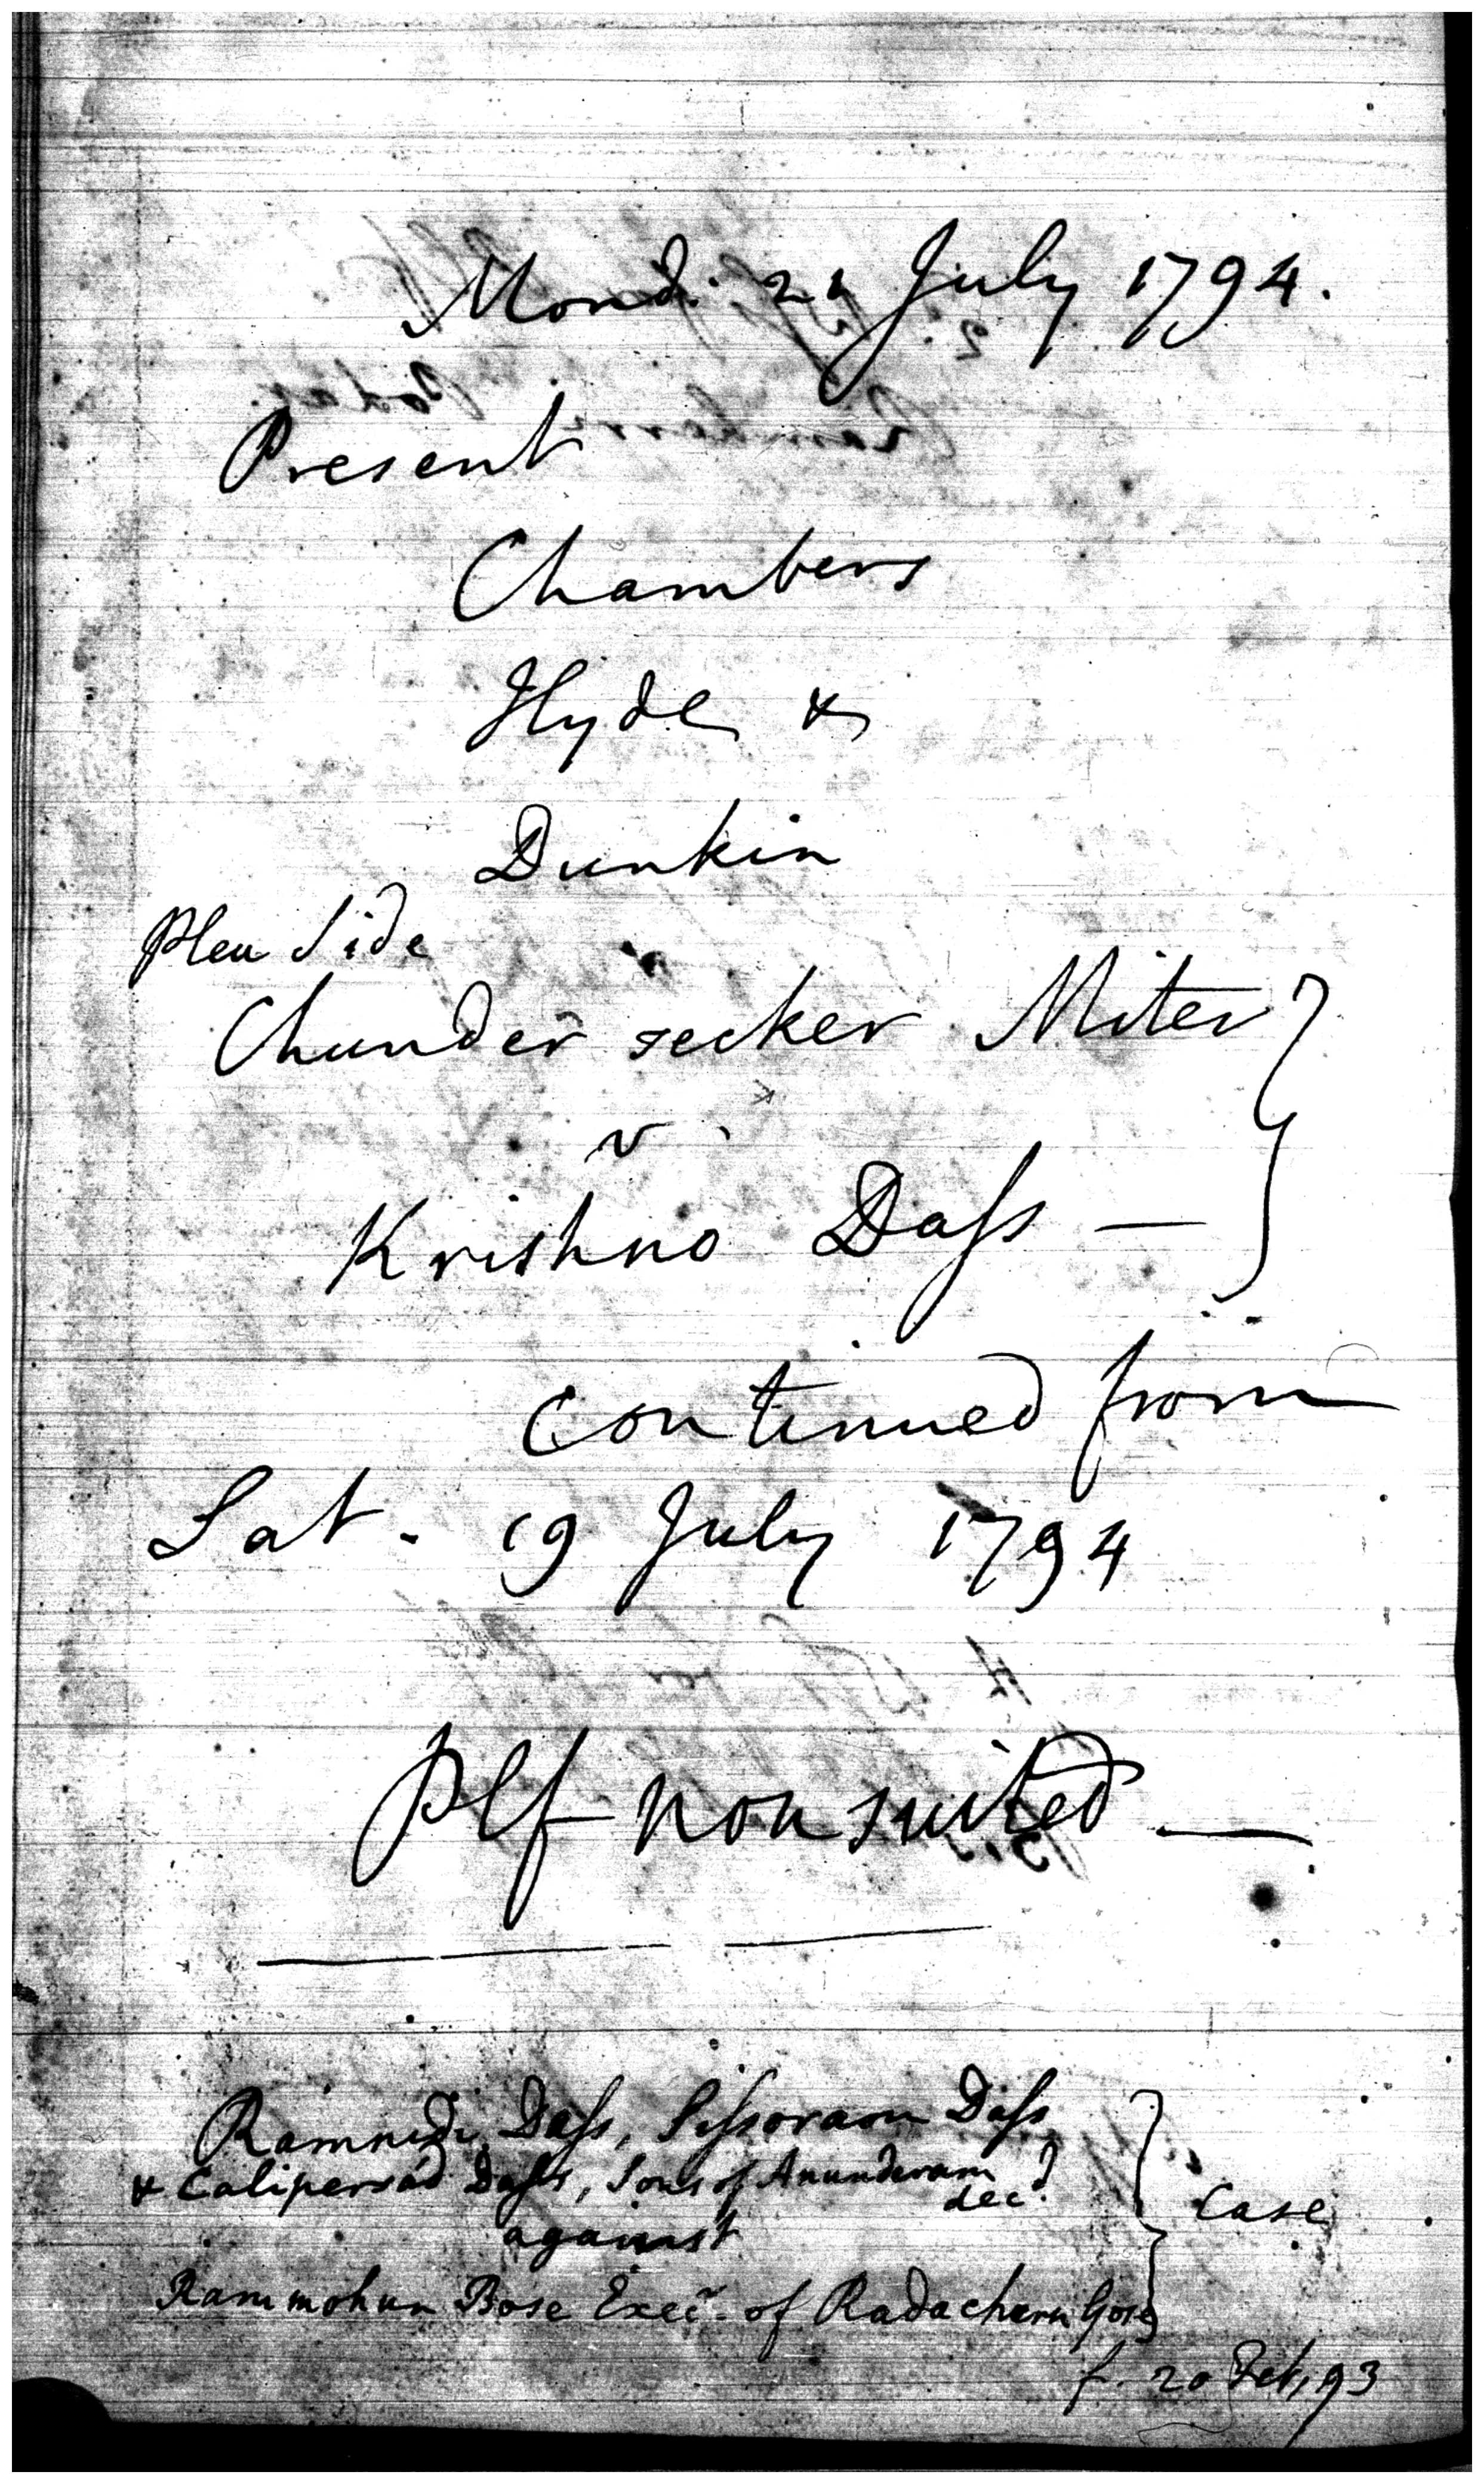 Mond. 21 July 1794.
Present
Chambers
Hyde &
Dunkin
Plea Side
Chunder seeker Miter
v
Krishno Dass —
continued from
Sat. 19 July 1794
Plf nonsuited —
Ramnidi Dass, Sissoram Dass
& Calipersad Dass, Sons of Anunderam
decd.
against
Case
Rammohun Bose Exec. of Radachurn Gose
f. 20 Feb, 93